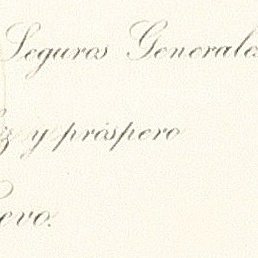 Seguros Generales
z y próspero
evo.